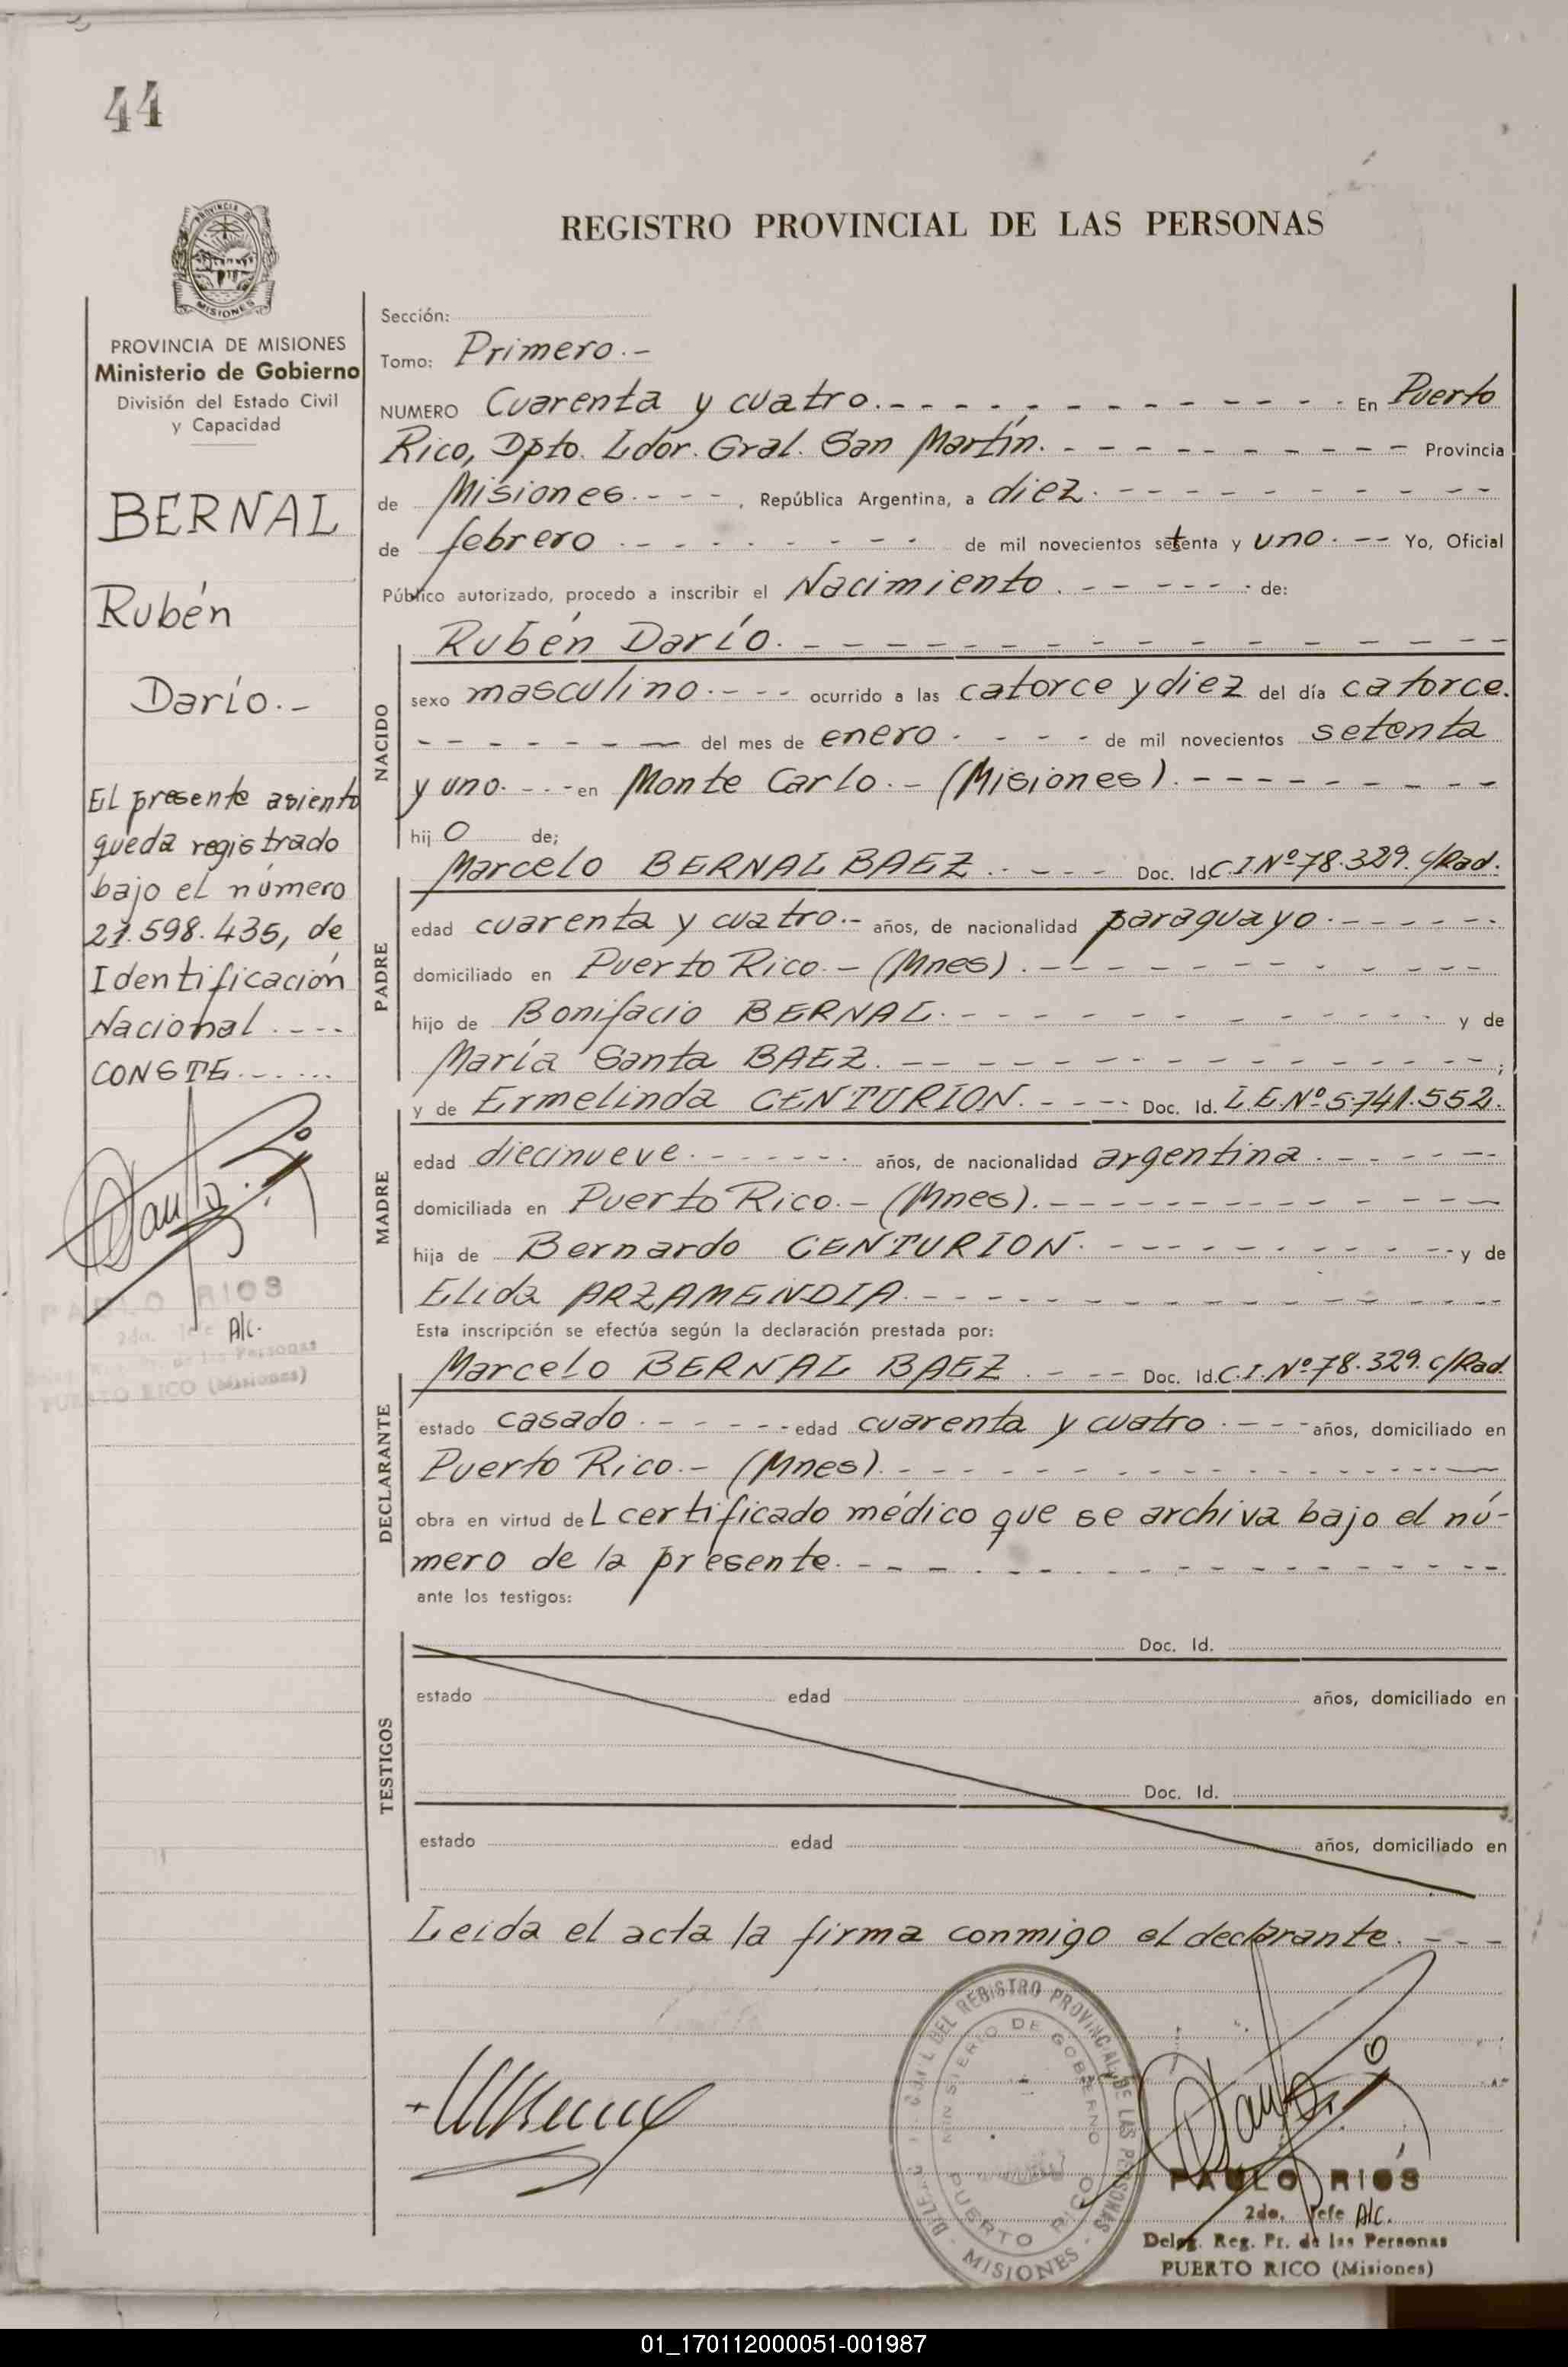 44
PROVINCIA DE
MISIONES
PROVINCIA DE MISIONES
Ministerio de Gobierno
División del Estado Civil
y Capacidad
BERNAL
Rubén
Darío.-
El presente asiento
queda registrado
bajo el número
21.598.435, de
Identificación
Nacional.----
CONSTE.-.-...
PABLO RIOS
2do. Jefe A/c.
Deleg. Reg. Pr. de las Personas
PUERTO RICO (Misiones)
REGISTRO PROVINCIAL DE LAS PERSONAS
Sección:
Tomo: Primero.-
NUMERO Cuarenta y cuatro.- - - En Puerto
Rico, Dpto. Ldor. Gral. San Martín.- - - Provincia
de Misiones.- - - , República Argentina, a diez.- - -
de febrero.- - - de mil novecientos setenta y uno.- -- Yo, Oficial
Público autorizado, procedo a inscribir el Nacimiento.- - - de:
NACIDO
Rubén Darío.- - -
sexo masculino.- - - ocurrido a las catorce y diez del día catorce.
- - - del mes de enero.- - - de mil novecientos setenta
y uno.- - - en Monte Carlo.- (Misiones).- - -
hijo de;
PADRE
Marcelo BERNAL BAEZ.- - - Doc. Id. C.I.Nº 78.329. c/Rad.
edad cuarenta y cuatro.- años, de nacionalidad paraguayo.- - -
domiciliado en Puerto Rico.- (Mnes).- - -
hijo de Bonifacio BERNAL.- - - y de
María Santa BAEZ.- - - ;
MADRE
y de Ermelinda CENTURION.- - - Doc. Id. L.E.Nº 5.741.552.
edad diecinueve.- - - años, de nacionalidad argentina.- - -
domiciliada en Puerto Rico.- (Mnes).- - -
hija de Bernardo CENTURION.- - - y de
Elida ARZAMENDIA.- - -
Esta inscripción se efectúa según la declaración prestada por:
DECLARANTE
Marcelo BERNAL BAEZ.- - - Doc. Id. C.I.Nº 78.329. c/Rad.
estado casado.- - - edad cuarenta y cuatro.- - - años, domiciliado en
Puerto Rico.- (Mnes).- - -
obra en virtud del certificado médico que se archiva bajo el nú-
mero de la presente.- - -
ante los testigos:
TESTIGOS
Doc. Id.
estado edad años, domiciliado en
Doc. Id.
estado edad años, domiciliado en
Leída el acta la firma conmigo el declarante.- - -
CIVIL DEL REGISTRO PROVINCIAL DE LAS PERSONAS
MINISTERIO DE GOBIERNO
PUERTO RICO
- MISIONES -
PABLO RIOS
2do. Jefe A/c.
Deleg. Reg. Pr. de las Personas
PUERTO RICO (Misiones)
01_170112000051-001987